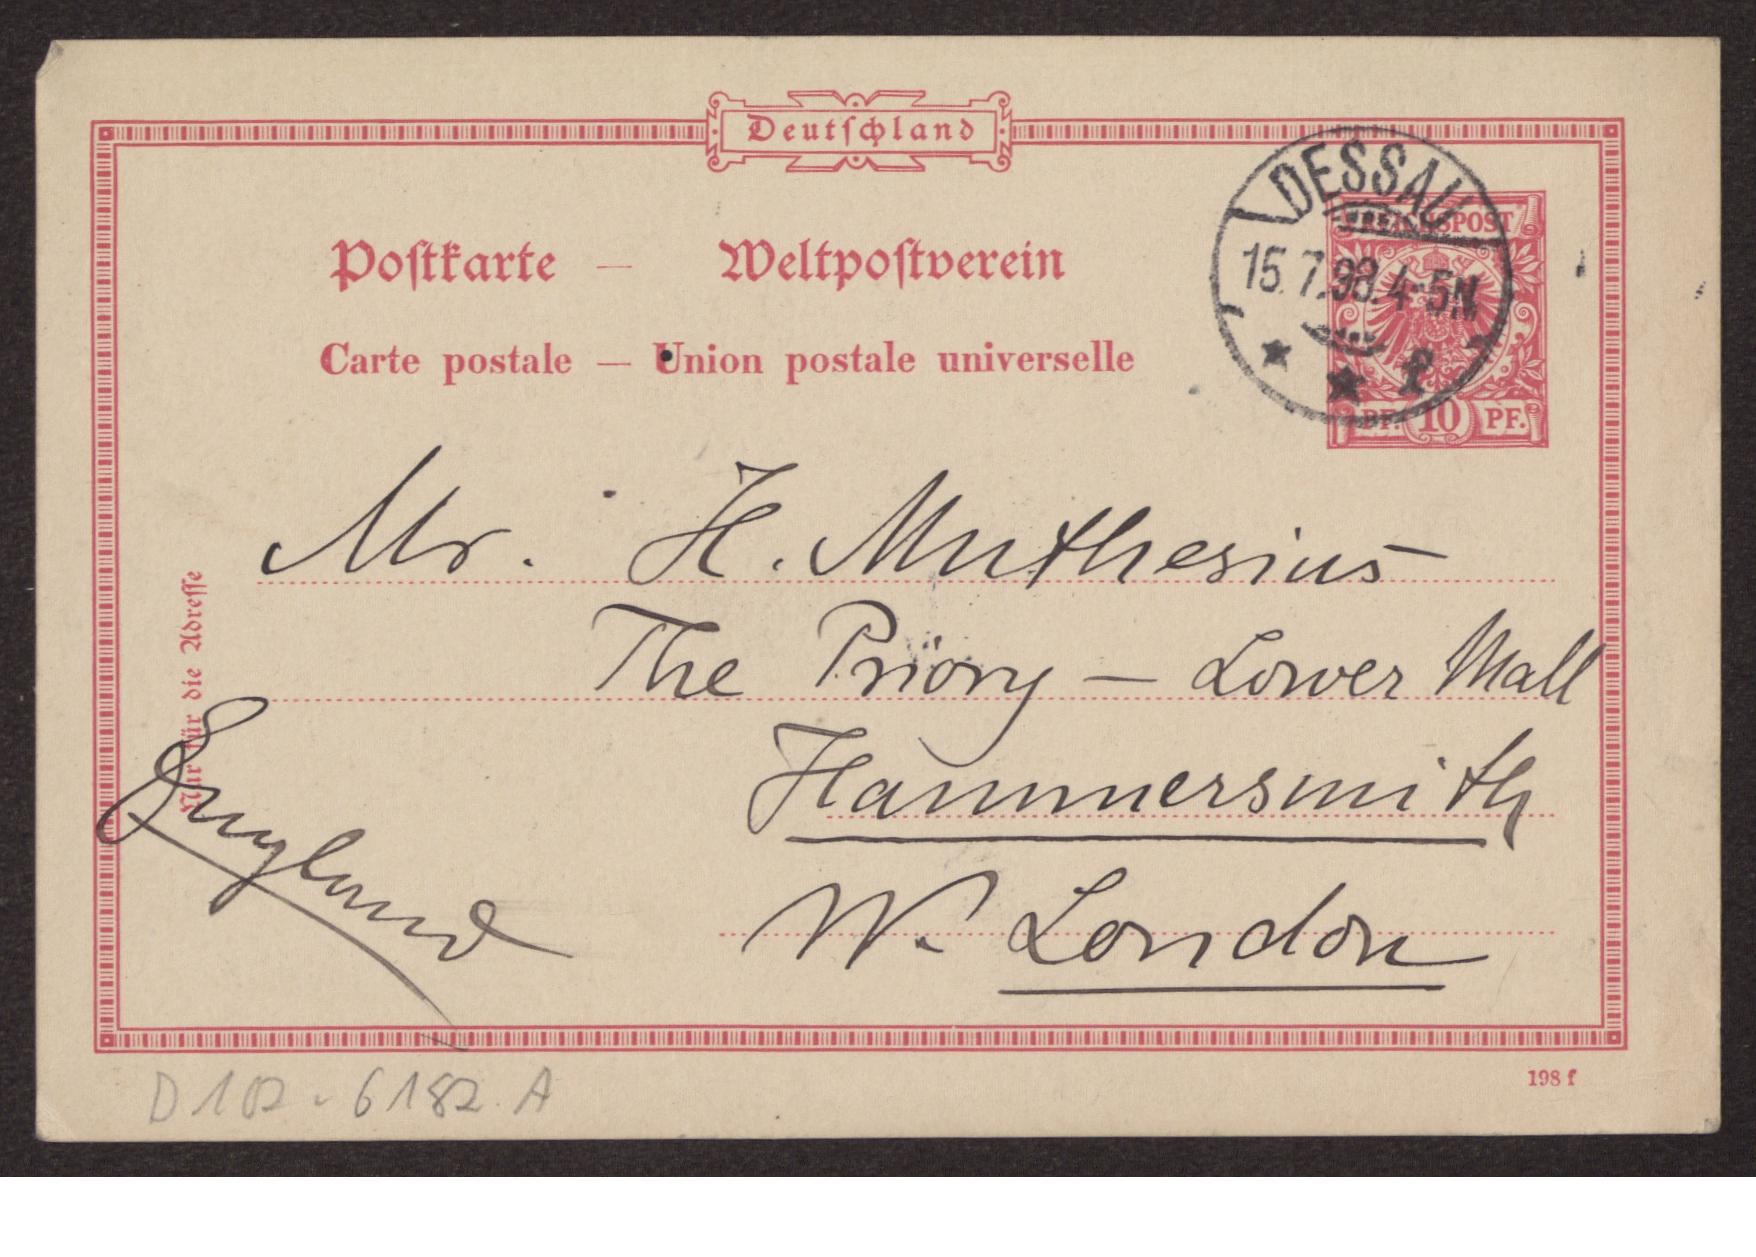 Deutschland
Postkarte — Weltpostverein
Carte postale — Union postale universelle
DESSAU
15.7.98.4-5N
* * f
REICHSPOST
PF. 10 PF.
Mr. H. Muthesius
The Priory — Lower Mall
Hammersmith
W. London
England
Nur für die Adresse
198 f
D 102-6182 A